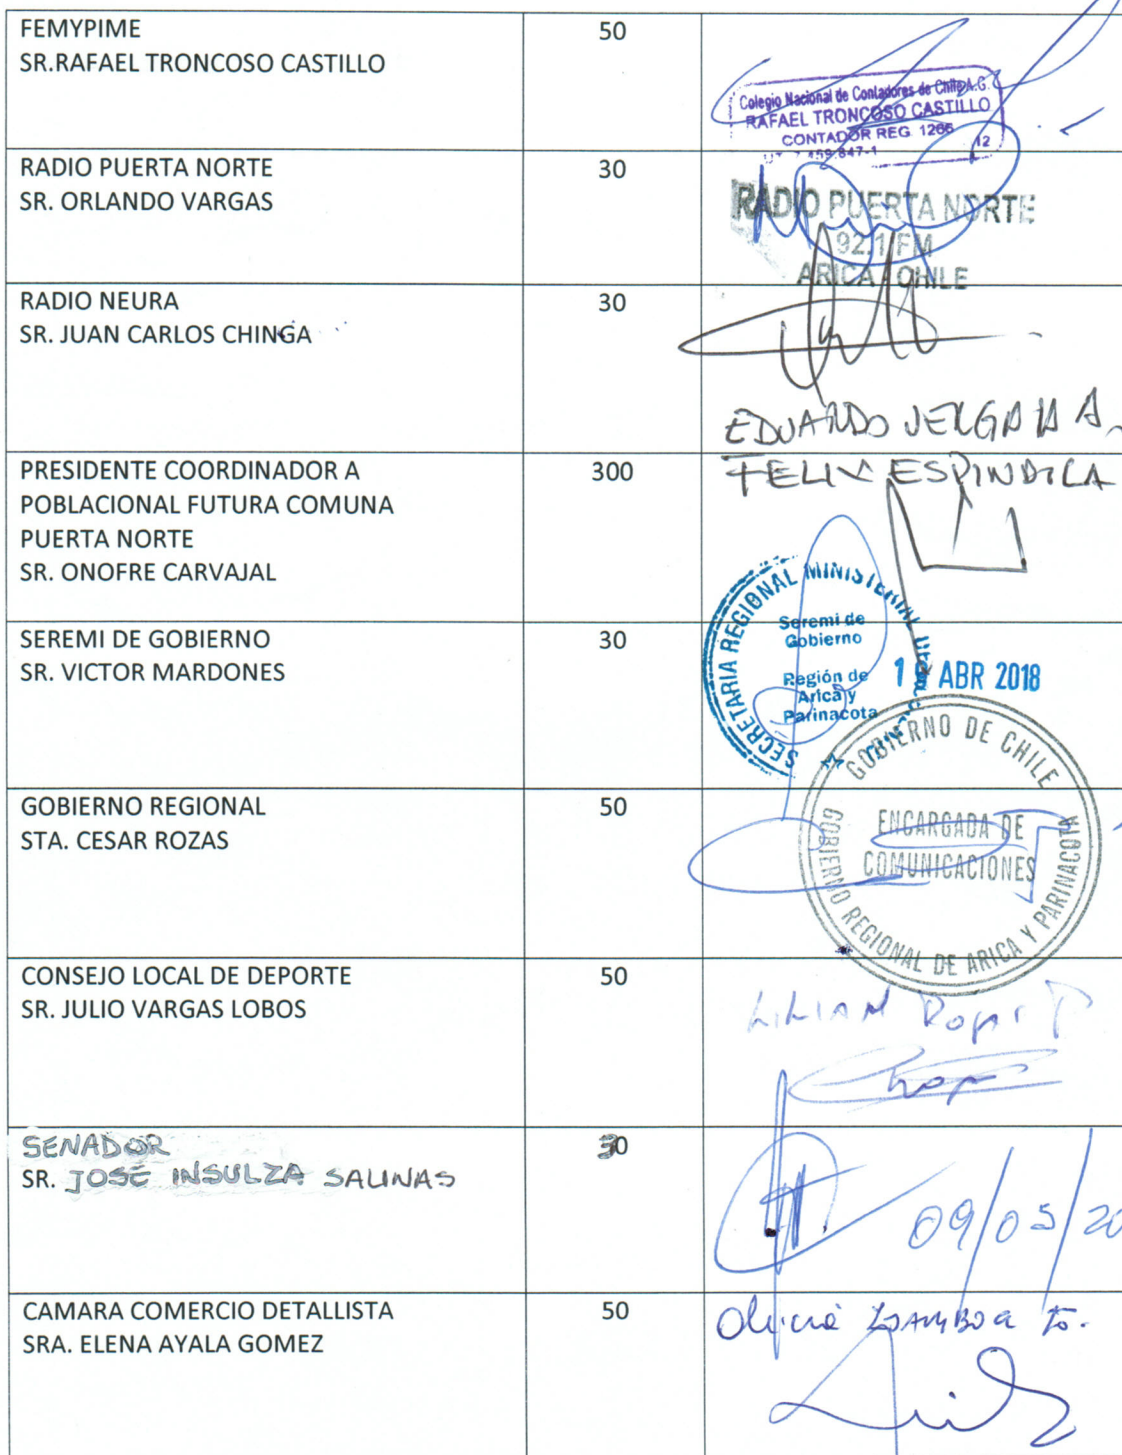 FEMYPIME
SR.RAFAEL TRONCOSO CASTILLO
50
Colegio Nacional de Contadores de Chile A.G.
RAFAEL TRONCOSO CASTILLO
CONTADOR REG. 1266
12
RADIO PUERTA NORTE
SR. ORLANDO VARGAS
30
RADIO PUERTA NORTE
92.1 FM
ARICA CHILE
RADIO NEURA
SR. JUAN CARLOS CHINGA
30
EDUARDO VERGARA A.
PRESIDENTE COORDINADOR A
POBLACIONAL FUTURA COMUNA
PUERTA NORTE
SR. ONOFRE CARVAJAL
300
FELIX ESPINDOLA
SEREMI DE GOBIERNO
SR. VICTOR MARDONES
30
SECRETARIA REGIONAL MINISTERIAL
Seremi de
Gobierno
Región de
Arica y
Parinacota
ABR 2018
GOBIERNO REGIONAL
STA. CESAR ROZAS
50
GOBIERNO DE CHILE
ENCARGADA DE
COMUNICACIONES
GOBIERNO REGIONAL DE ARICA Y PARINACOTA
CONSEJO LOCAL DE DEPORTE
SR. JULIO VARGAS LOBOS
50
LILIAN
SENADOR
SR. JOSE INSULZA SALINAS
30
09/05/20
CAMARA COMERCIO DETALLISTA
SRA. ELENA AYALA GOMEZ
50